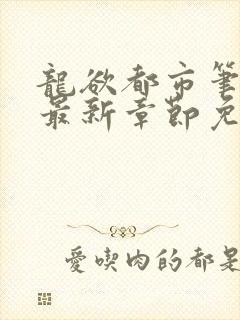 龍欲都市筆
最新章節免
愛喫肉的都是